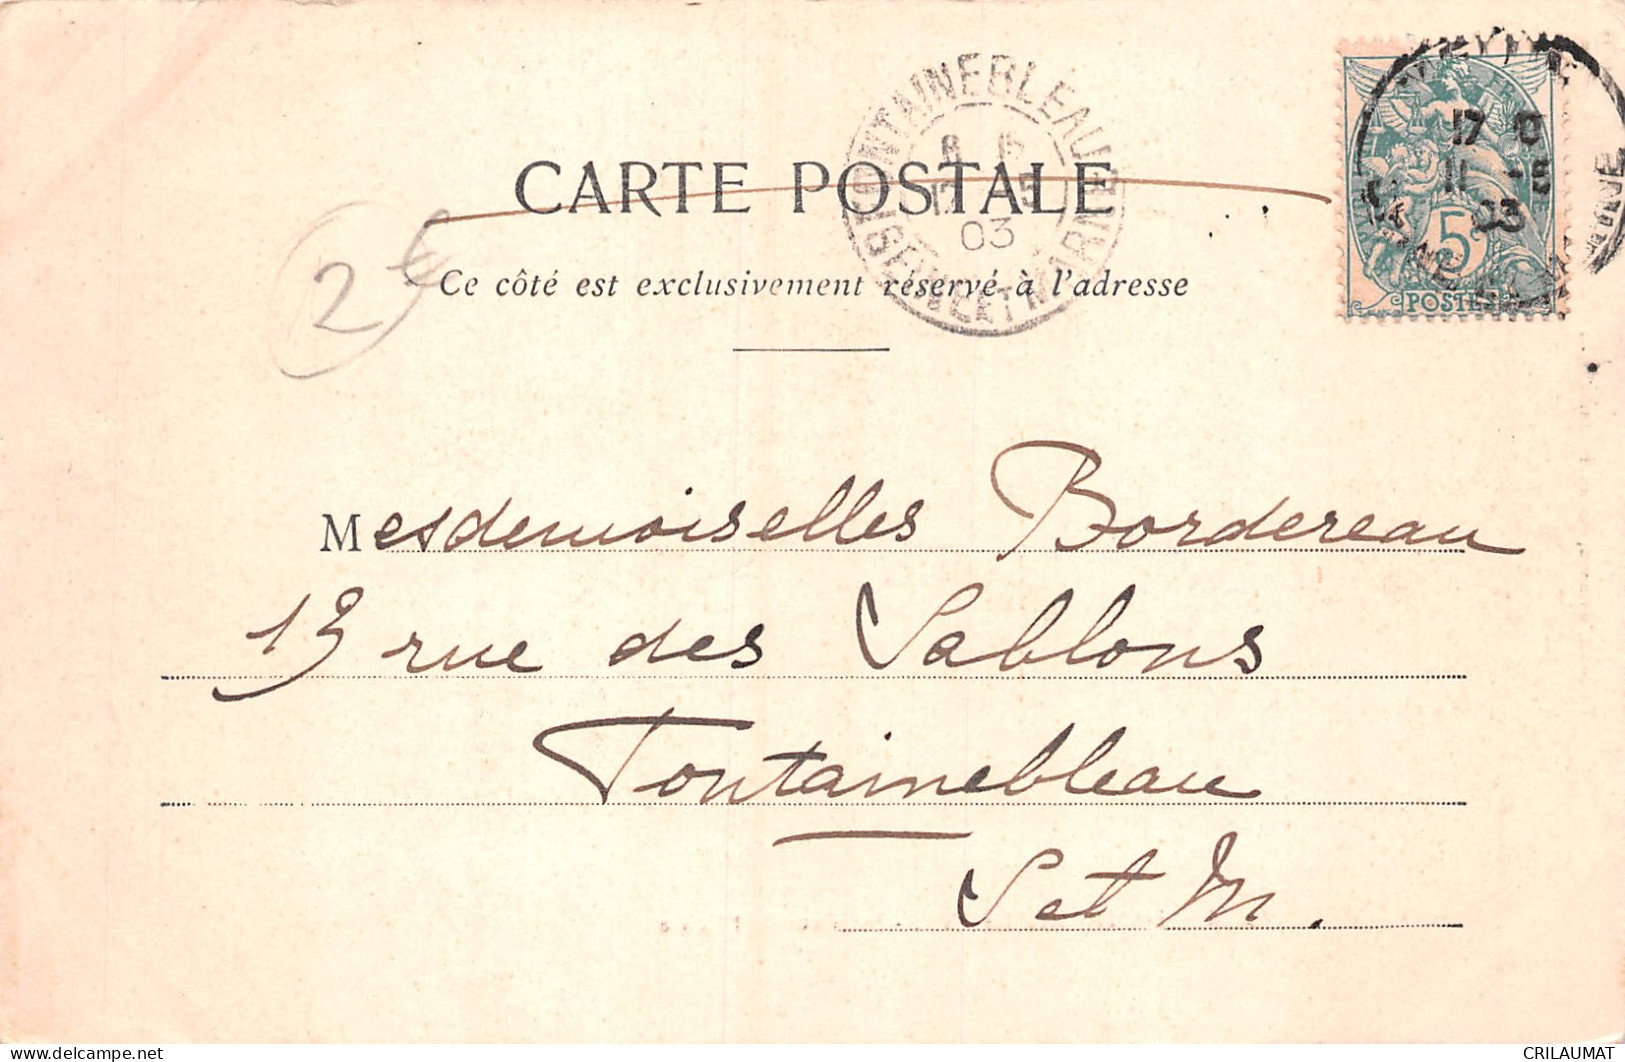 CARTE POSTALE
Ce côté est exclusivement réservé à l'adresse
FONTAINEBLEAU
12 -5
03
SEINE-ET-MARNE
17
11 -5
03
5c
POSTES
2€
Mesdemoiselles Bordereau
13 rue des Sablons
Fontainebleau
S et M.
delcampe.net
CRILAUMAT